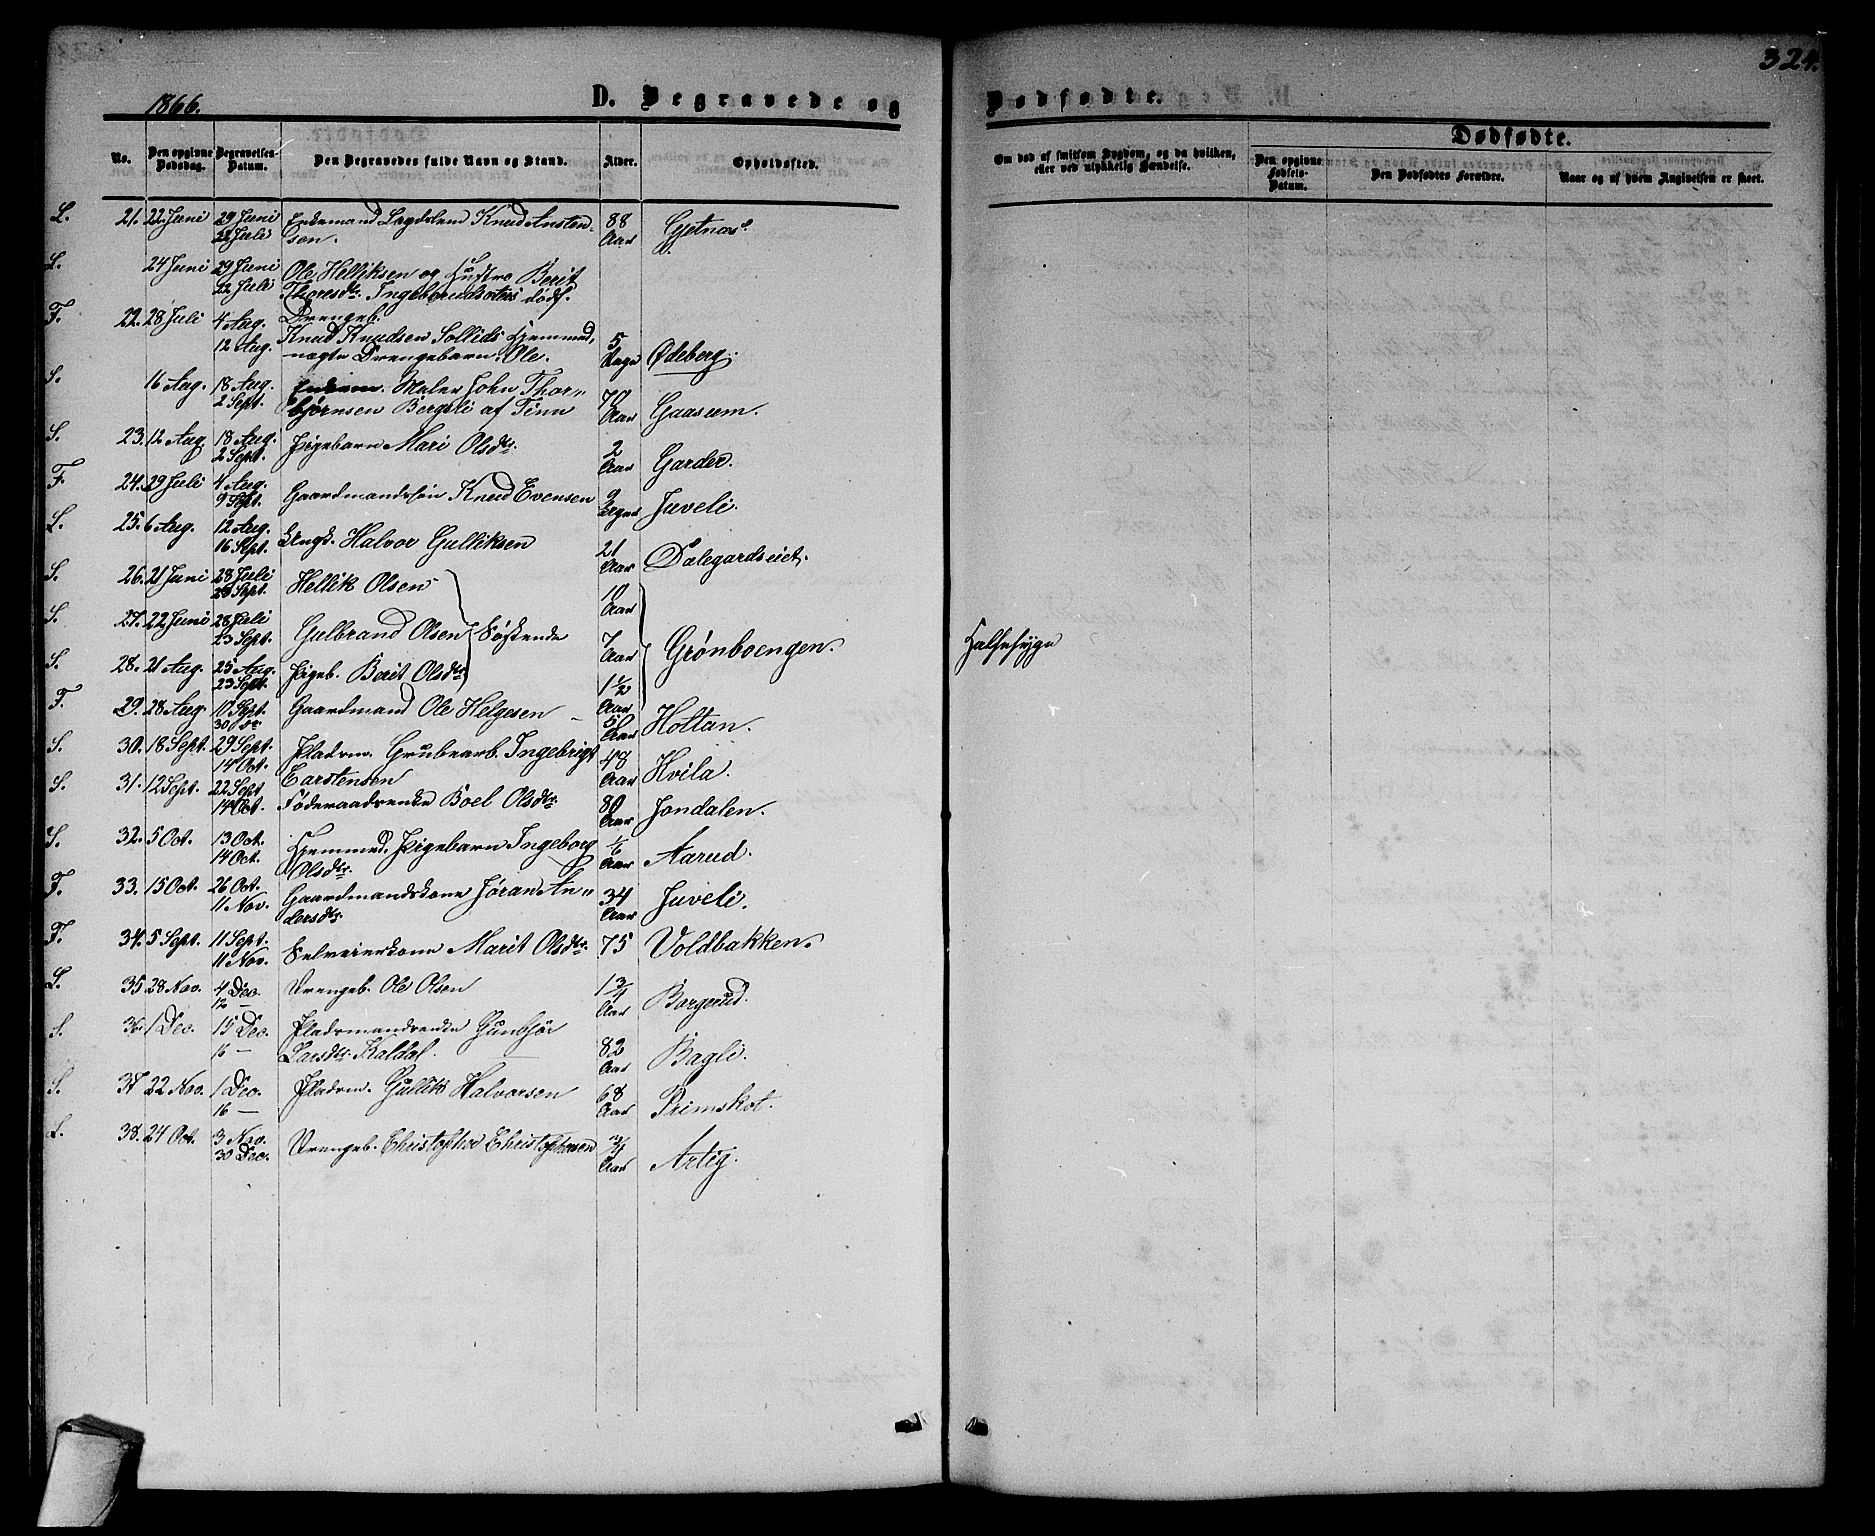 324.
1866. D. Begravede og Dødfødte.
Dødfødte.
No. Den opgivne Dødsdag. Begravelses-Datum. Den Begravedes fulde Navn og Stand. Alder. Opholdssted.
Om død af smitsom Sygdom, og da hvilken, eller ved ulykkelig Hændelse. Den opgivne Fødsels-Datum. Den Dødfødtes Forældre. Naar og af hvem Angivelsen er skeet.
L. 21. 22 Juni 29 Juni Enkemand Lægdslem Knud Ansten- 88 Gjetnæs.
22 Juli sen. Aar
L. 24 Juni 29 Juni Ole Helliksen og Hustro Berit
22 Juli Thoresdtr. Ingebrudsøtnes dødf.
Drengeb.
F. 22. 28 Juli 4 Aug. Knud Knudsen Sollids hjemmed. 5
12 Aug. nægte Drengebarn Ole. Dage Ødeberg.
S. 16 Aug. 18 Aug. Maler John Thor- 70
2 Sept. bjørnsen Bergsli af Tinn Aar Gaasum.
S. 23. 12 Aug. 18 Aug. Pigebarn Mari Olsdtr. 2
2 Sept. Aar Garder.
F. 24. 29 Juli 4 Aug. Gaardmandssøn Knud Evensen 9
9 Sept. Juveli.
L. 25. 6 Aug. 12 Aug. Ungk. Halvor Gulliksen 21
16 Sept. Aar Dalegardseiet.
S. 26. 21 Juni 28 Juli Hellik Olsen 10
23 Sept. Aar
S. 27. 22 Juni 28 Juli Gulbrand Olsen Søskende 7 Grønboengen. Halsesyge
23 Sept. Aar
S. 28. 21 Aug. 25 Aug. Pigeb. Berit Olsdtr. 1 1/2
23 Sept. Aar
F. 29. 28 Aug. 10 Sept. Gaardmand Ole Helgesen 50 Holtan.
30 do Aar
S. 30. 18 Sept. 29 Sept. Pladsm. Grubearb. Ingebrigt 48
14 Oct. Carstensen Aar Hvila.
S. 31. 12 Sept. 22 Sept. Føderaadsenke Boel Olsdtr. 80 Jondalen.
14 Oct. Aar
S. 32. 5 Oct. 13 Oct. Hjemmed. Pigebarn Ingeborg 1/6
14 Oct. Olsdtr. Aar Aarud.
F. 33. 15 Oct. 26 Oct. Gaardmandskone Jøran An- 34
11 Nov. dersdtr. Aar Juveli.
F. 34. 5 Sept. 11 Sept. Selveierkone Marit Olsdtr. 75 Voldbakken.
11 Nov.
L. 35. 28 Nov. 4 Dec. Drengeb. Ole Olsen 1 3/4
12 — Aar Borgerud.
S. 36. 1 Dec. 15 Dec. Pladsmandsenke Gunbjør
16 — Larsdtr. Kaldal. 82 Aar Bagli.
S. 37. 22 Nov. 1 Dec. Pladsm. Gullik Halvorsen 68
16 — Aar Primskot.
L. 38. 24 Oct. 3 Nov. Drengeb. Christopher Christophersen 3/4
30 Dec. Aar Artig.